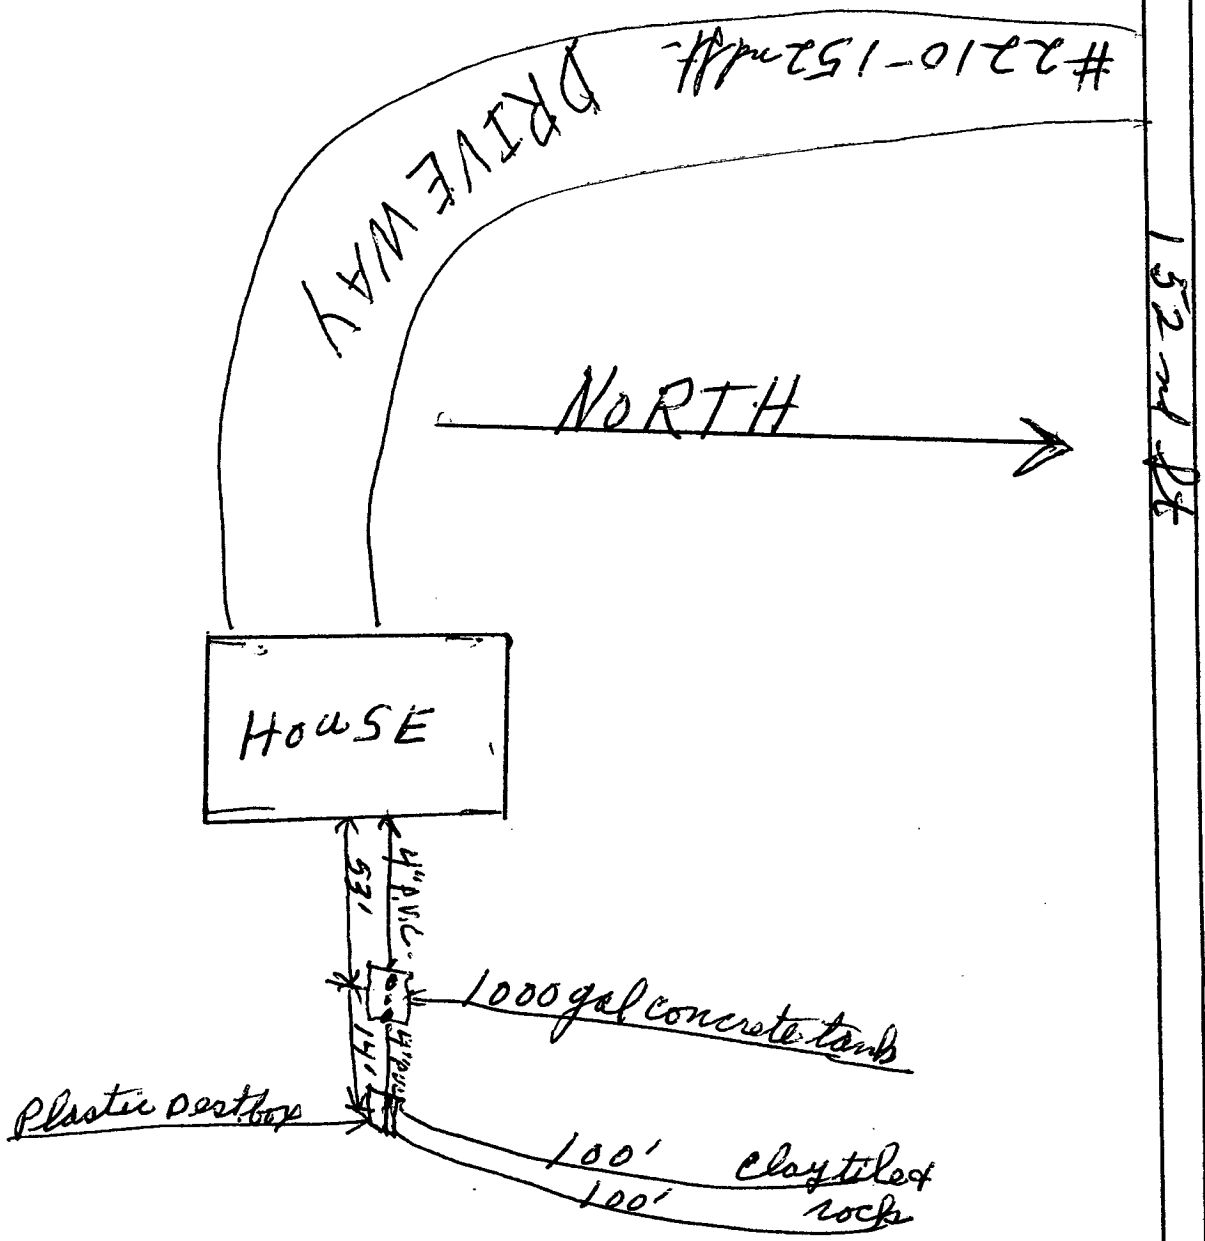 #2210-152nd St.
DRIVEWAY
152nd St
NORTH
HOUSE
53'
4" P.V.C.
1000 gal concrete tank
14'
4" pvc
Plastic Dest. box
100' Clay tile &
100' rock